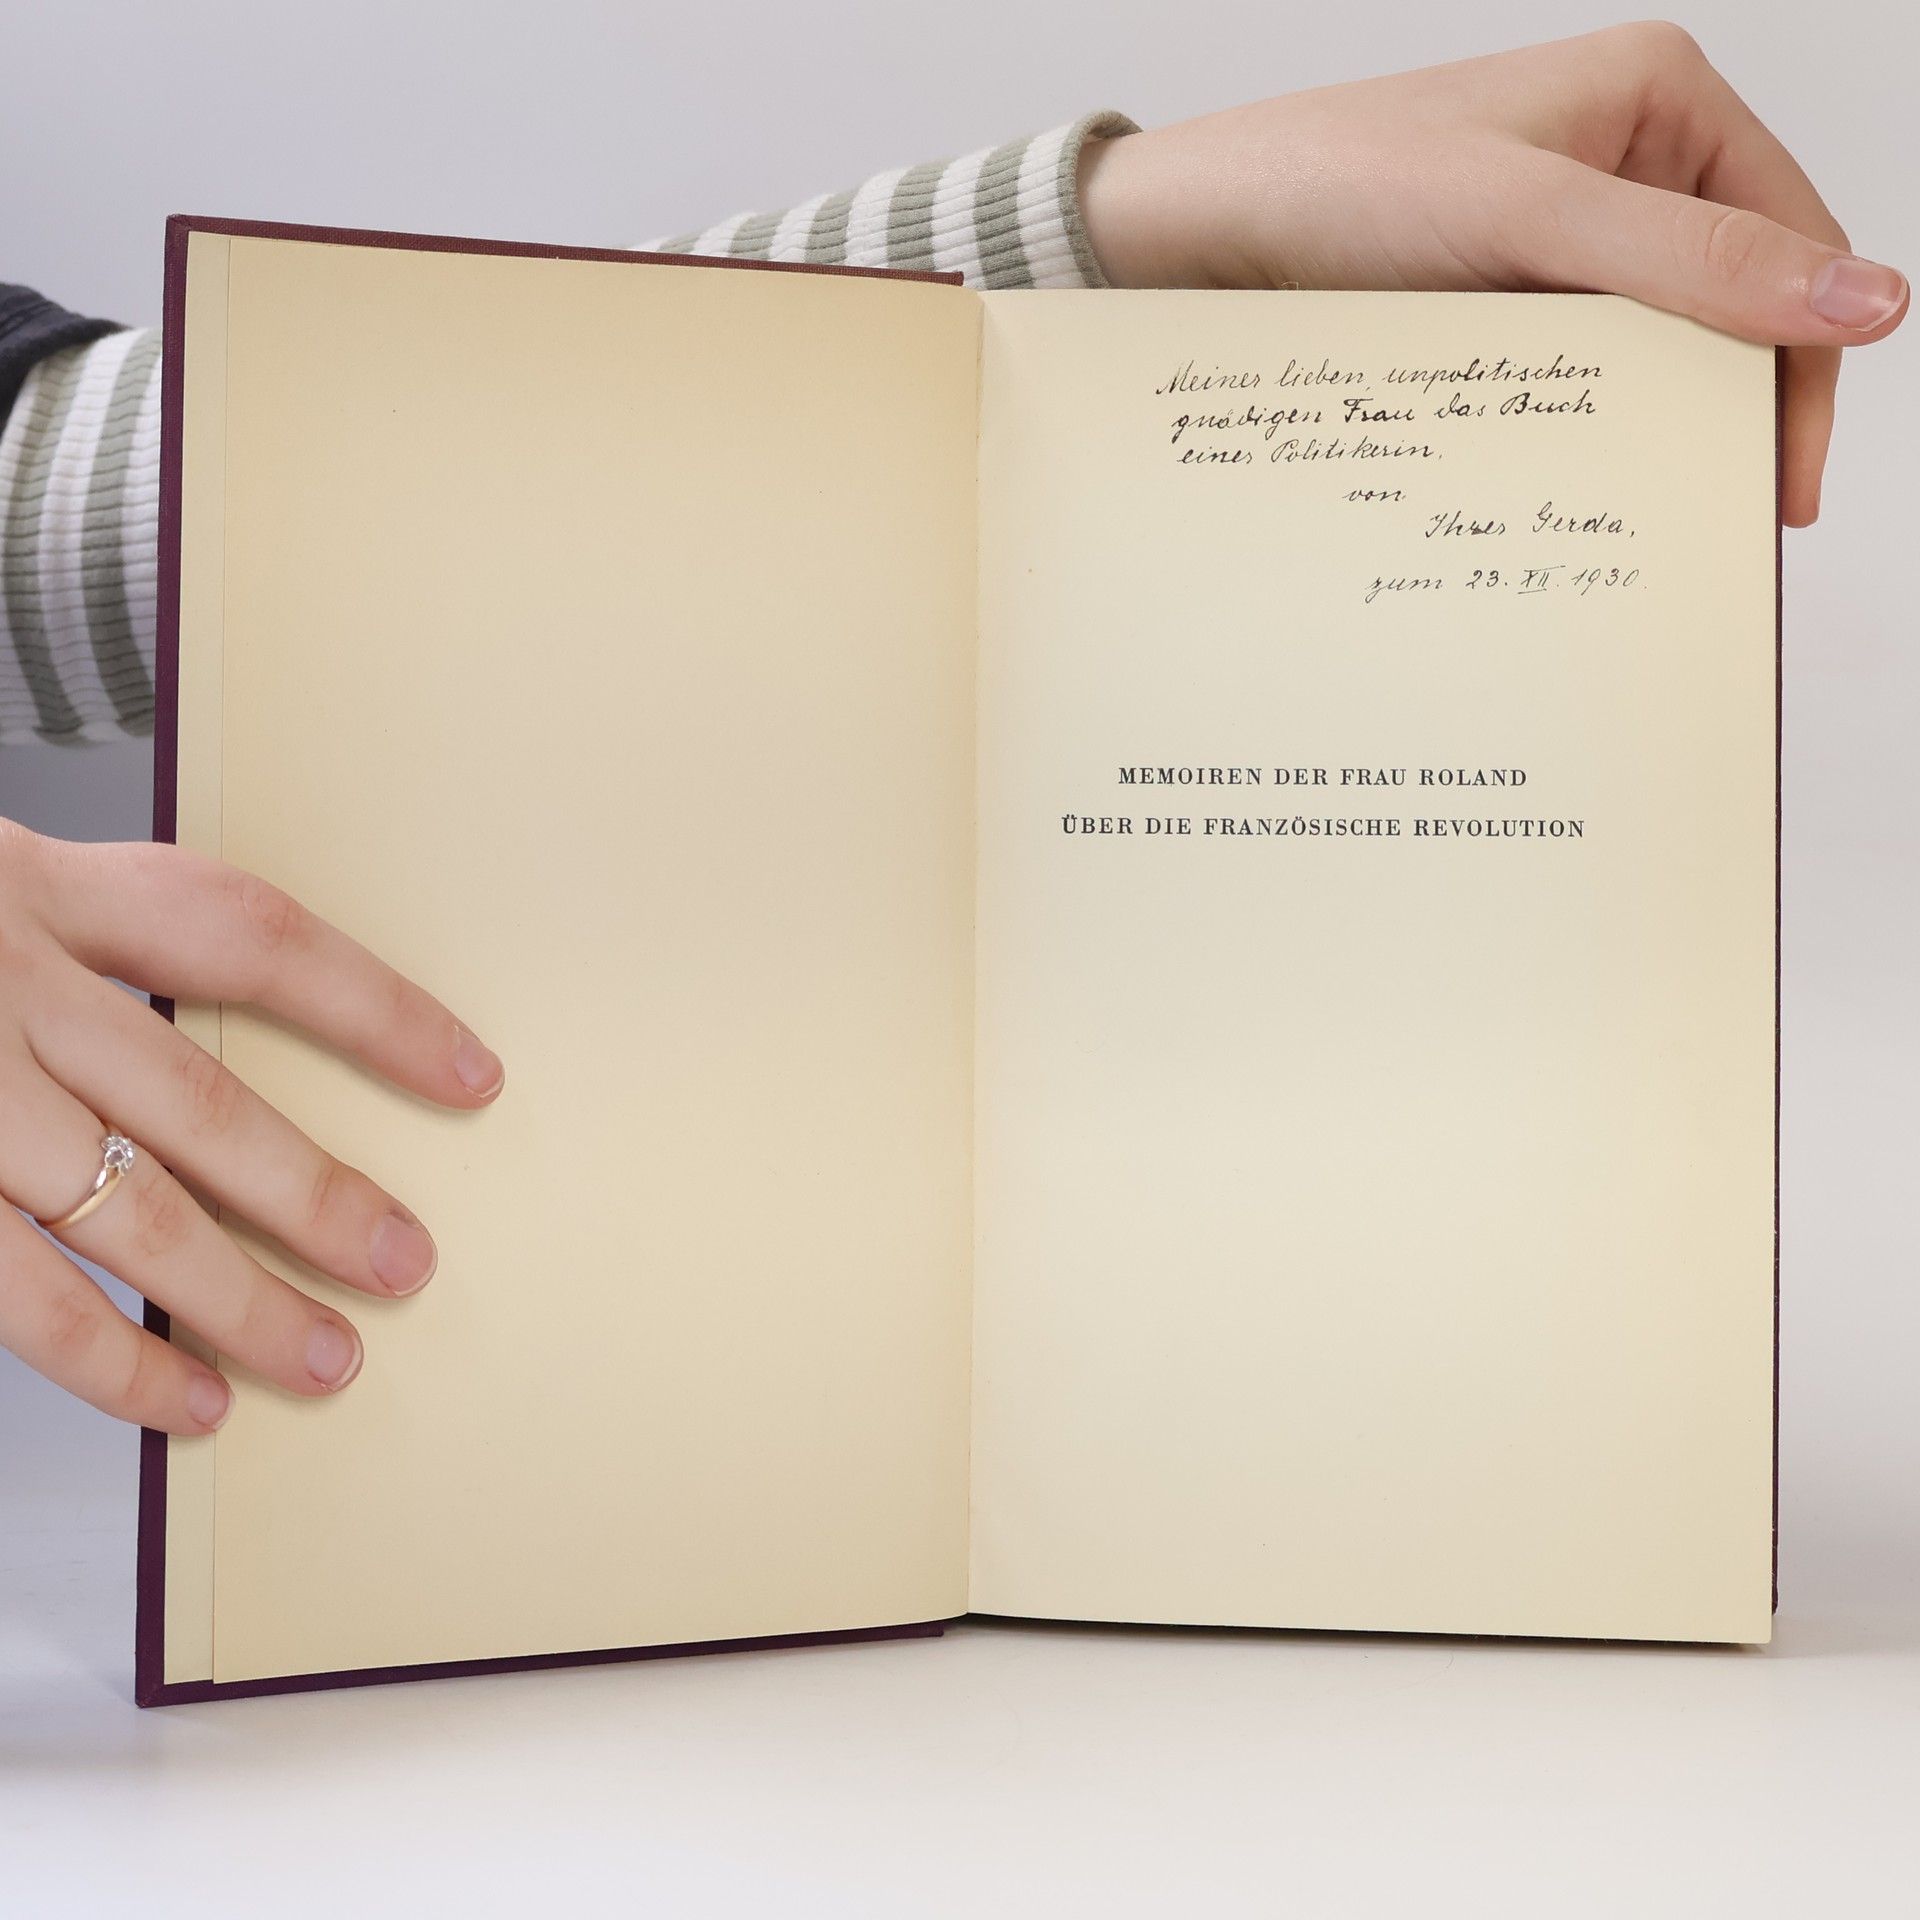 Meiner lieben, unpolitischen
gnädigen Frau das Buch
einer Politikerin.
von
Ihrer Gerda,
zum 23. XII. 1930.
MEMOIREN DER FRAU ROLAND
ÜBER DIE FRANZÖSISCHE REVOLUTION